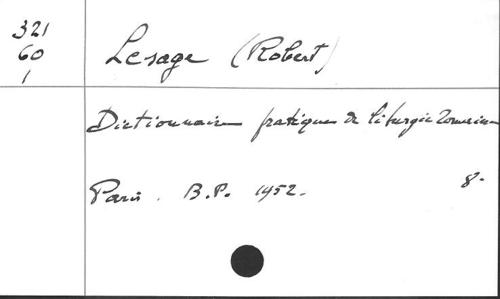 321
60
1
Lesage (Robert)
Dictionnaire pratique de liturgie romaine
Paris. B.P. 1952.
8-